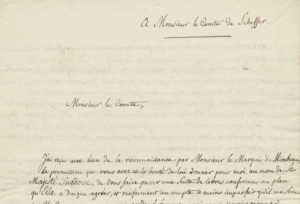 A Monsieur le Comte de Scheffer.
Monsieur le Comte,
J'ai reçu avec bien de la reconnaissance par Monsieur le Marquis de Mirabeau,
la permission que vous avez eu la bonté de lui donner pour moi au nom de Sa
Majesté Suédoise, de Vous faire passer une Suite de lettres conformes au plan
qu'Elle a daigné agréer, et renfermant un compte le moins imparfait qu'il me